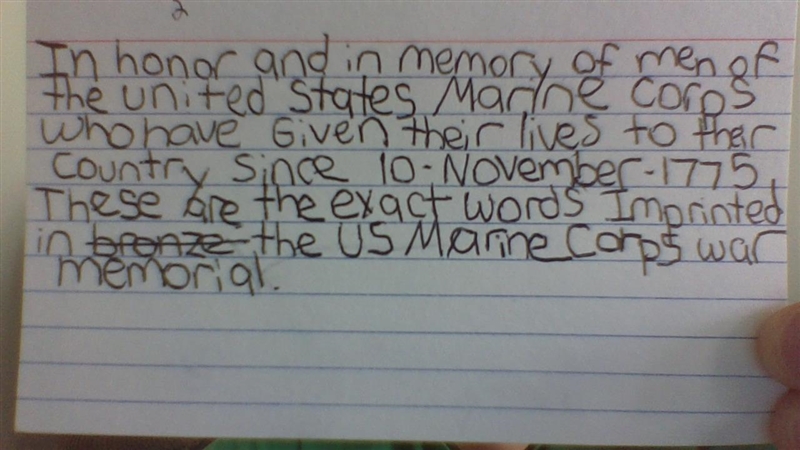 2
In honor and in memory of men of
the united States Marine Corps
who have Given their lives to their
Country Since 10-November-1775.
These are the exact words Imprinted
in bronze the US Marine Corps war
memorial.